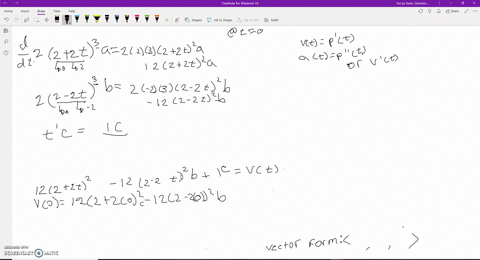 OneNote for Windows 10
@t=0
d/dt 2(2+2t)^3 a = 2(2)(3)(2+2t)^2 a
12(2+2t)^2 a
v(t)=p'(t)
a(t)=p''(t)
or v'(t)
2(2-2t)^3 b = 2(-2)(3)(2-2t)^2 b
-12(2-2t)^2 b
t'c = 1c
12(2+2t)^2 -12(2-2t)^2 b + 1c = v(t)
v(0) = 12(2+2(0))^2 -12(2-2(0))^2 b
vector form: < , , >
RECORDED WITH
SCREENCAST MATIC